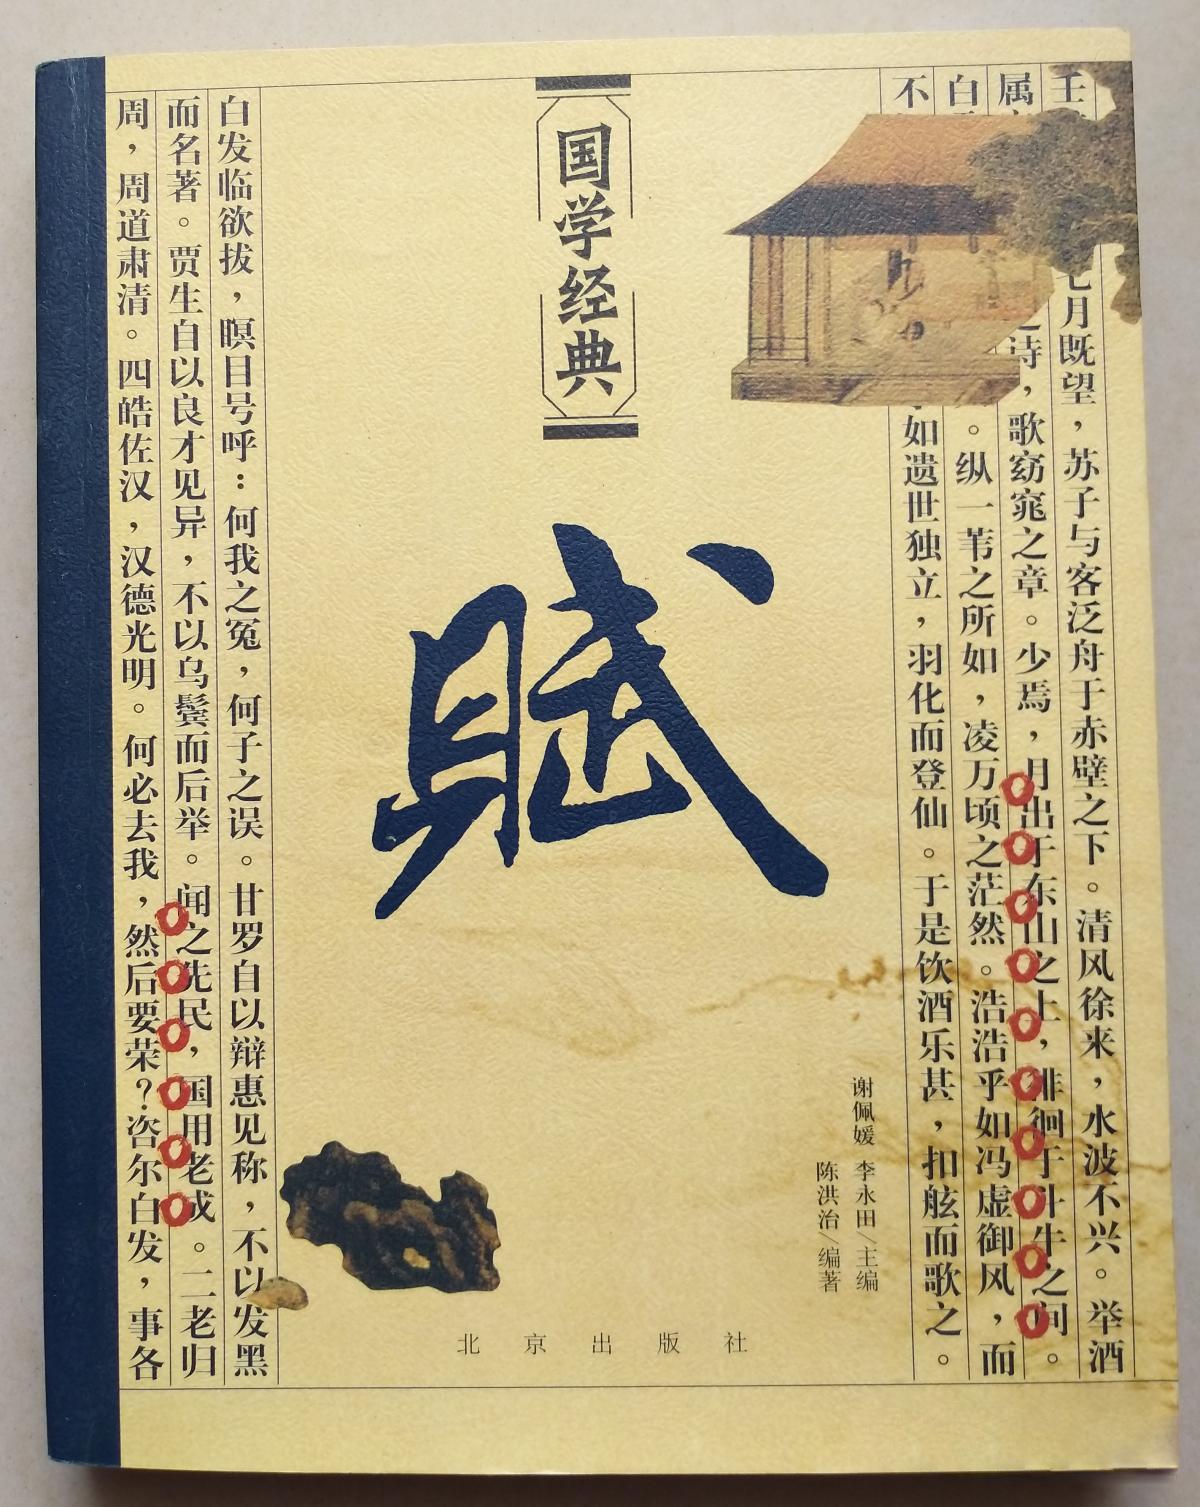 壬七月既望，苏子与客泛舟于赤壁之下。清风徐来，水波不兴。举酒
属之诗，歌窈窕之章。少焉，月出于东山之上，徘徊于斗牛之间。
白。纵一苇之所如，凌万顷之茫然。浩浩乎如冯虚御风，而
不乎如遗世独立，羽化而登仙。于是饮酒乐甚，扣舷而歌之。
国学经典
赋
谢佩媛 李永田/主编
陈洪治/编著
北京出版社
白发临欲拔，瞑目号呼：何我之冤，何子之误。甘罗自以辩惠见称，不以发黑
而名著。贾生自以良才见异，不以乌鬓而后举。闻之先民，国用老成。二老归
周，周道肃清。四皓佐汉，汉德光明。何必去我，然后要荣？咨尔白发，事各